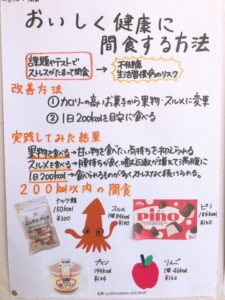 おいしく健康に
間食する方法
課題やテストで
ストレスがたまって間食
→
不健康
生活習慣病のリスク
改善方法
①カロリーの高いお菓子から果物・スルメに変更
②1日200kcalを目安に食べる
実践してみた結果
果物を食べる→甘い物を食べたい気持ちを抑えられる
スルメを食べる→腹持ちが良く噛む回数が増えて満腹に
1日200kcal→食べられるものが多くストレスなく続けられる。
200kcal以内の間食
ナッツ類
150kcal
¥200
スルメ
ピノ
pino
¥160
プリン
¥124
りんご
¥162